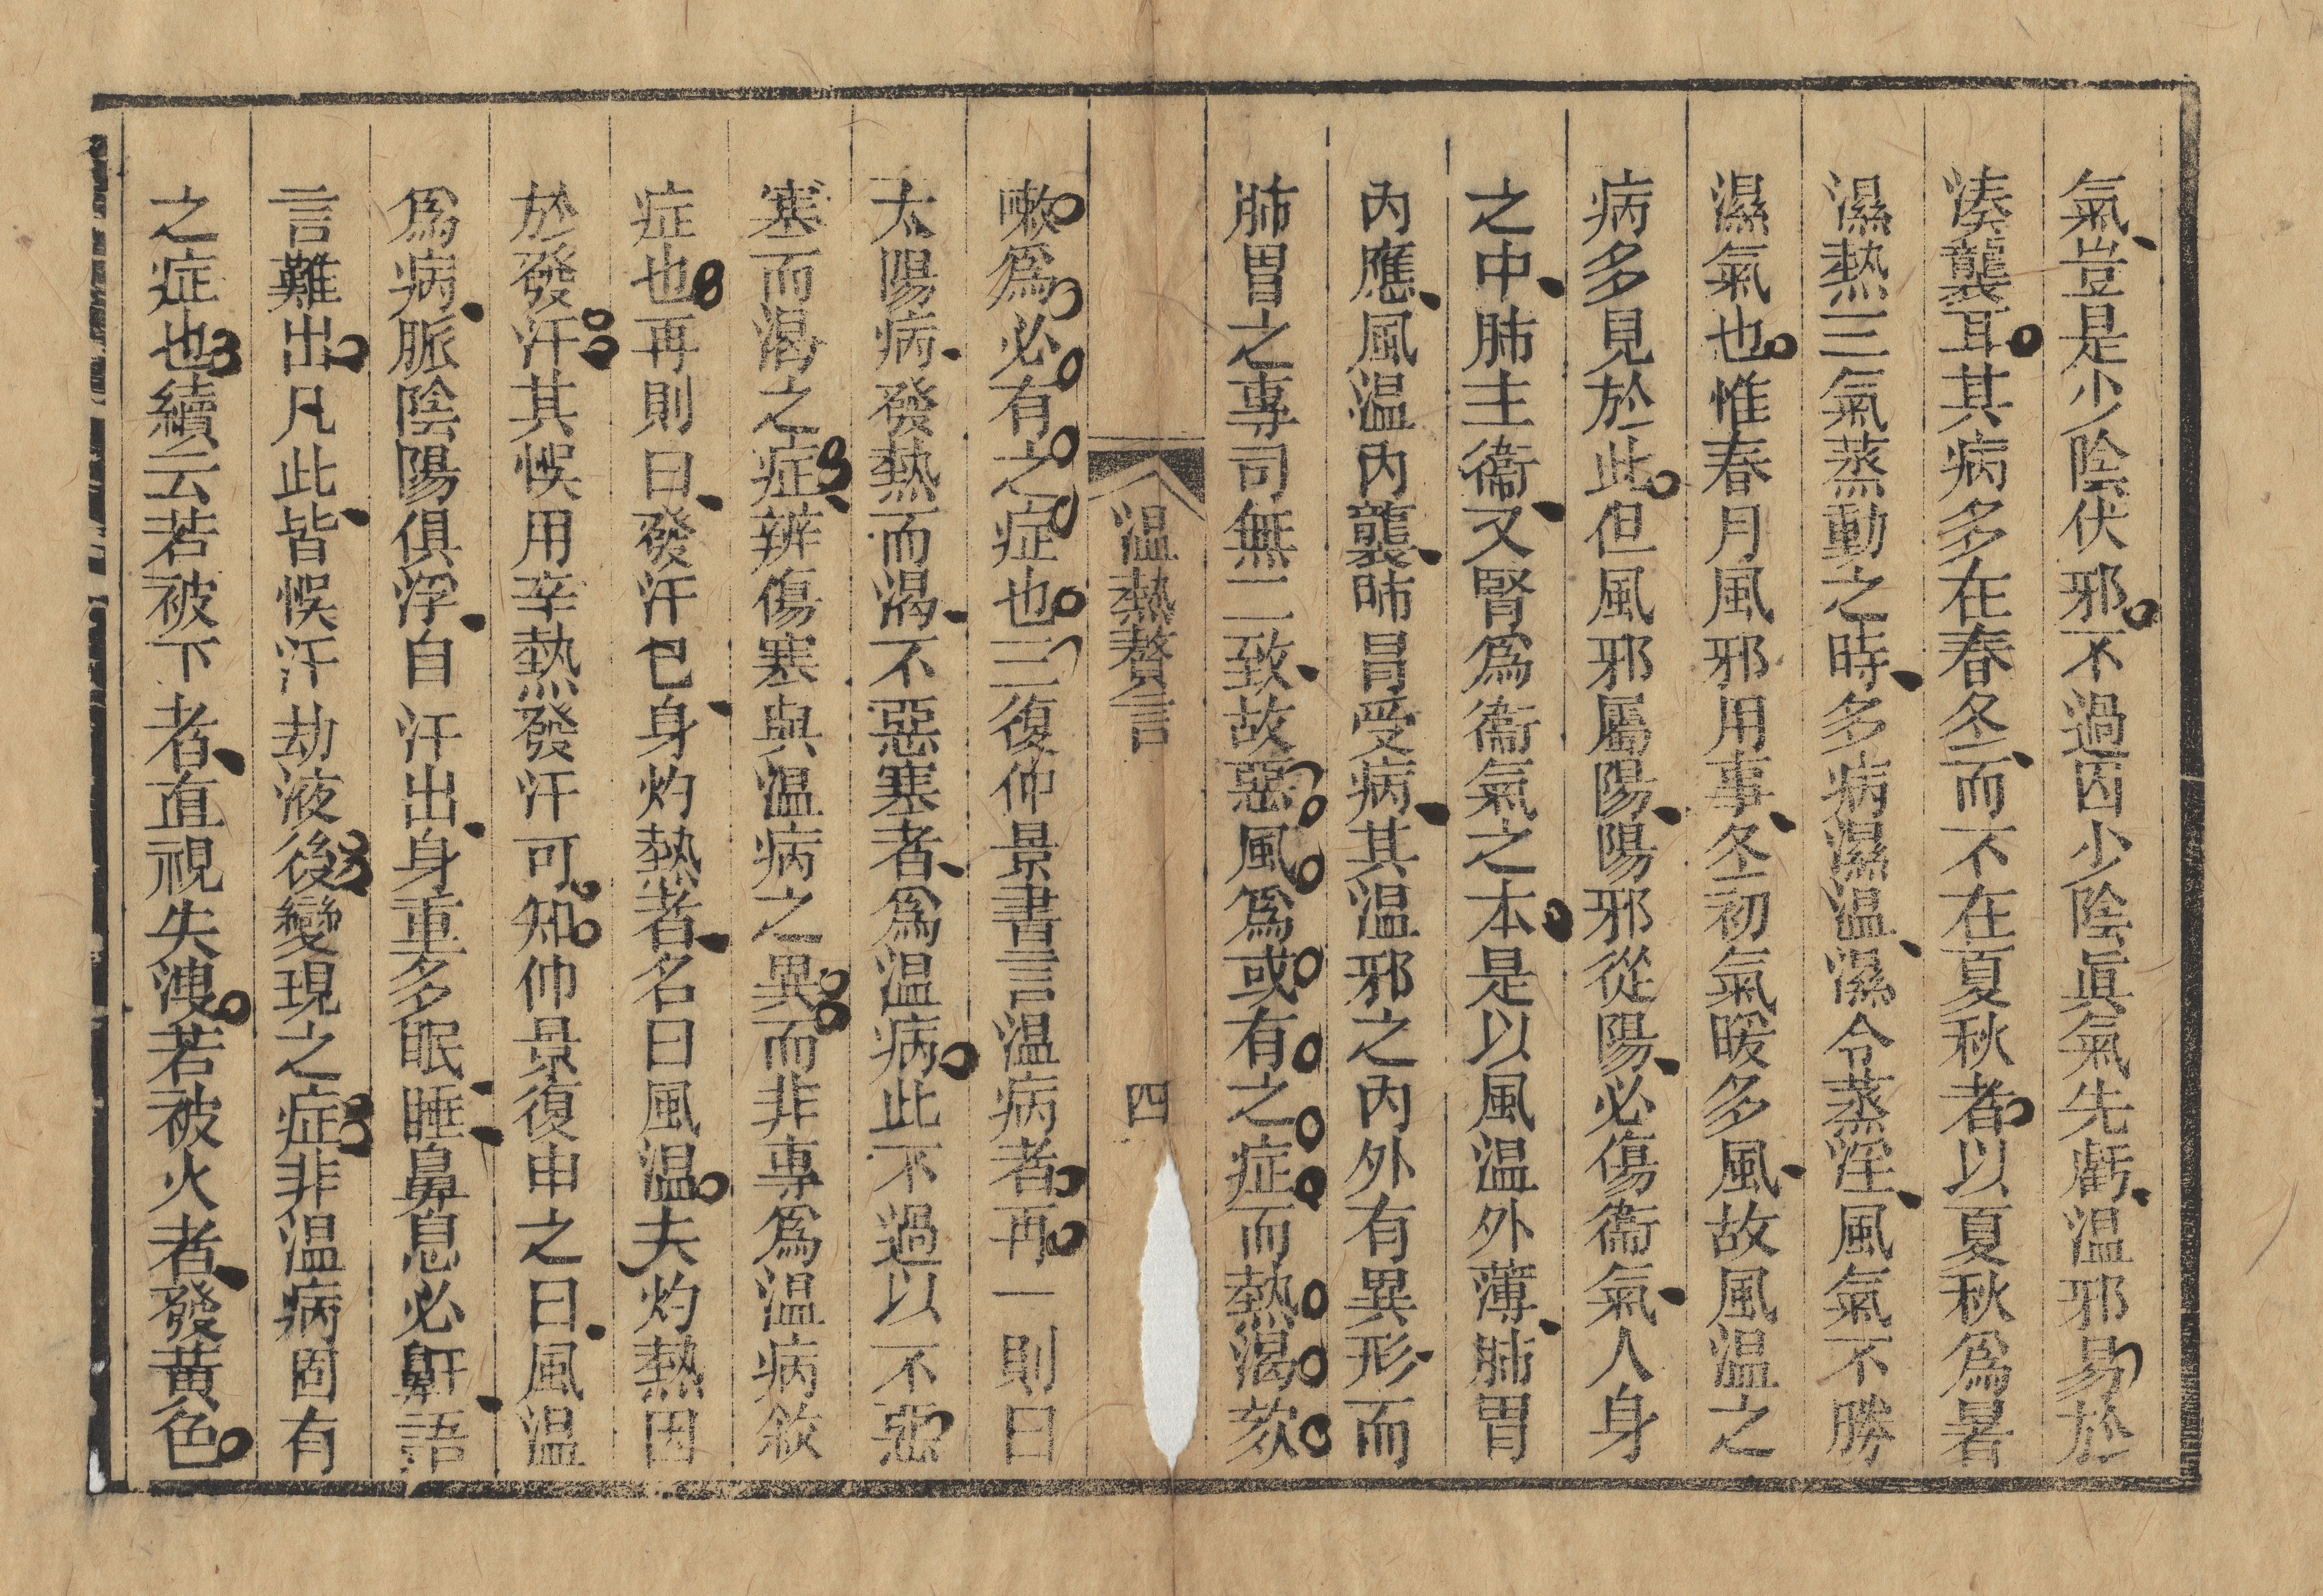 氣豈是少陰伏邪不過因少陰眞氣先虧温邪易於
湊襲耳其病多在春冬而不在夏秋者以夏秋爲暑
濕熱三氣蒸動之時多病濕温濕令蒸淫風氣不勝
濕氣也惟春月風邪用事冬初氣暖多風故風温之
病多見於此但風邪屬陽陽邪從陽必傷衞氣人身
之中肺主衞又腎爲衞氣之本是以風温外薄肺胃
內應風温內襲肺胃受病其温邪之內外有異形而
肺胃之專司無二致故惡風爲或有之症而熱渴欬
温熱贅言
四
嗽爲必有之症也三復仲景書言温病者再一則曰
太陽病發熱而渴不惡寒者爲温病此不過以不惡
寒而渴之症辨傷寒與温病之異而非專爲温病敘
症也再則曰發汗已身灼熱者名曰風温夫灼熱因
於發汗其悞用辛熱發汗可知仲景復申之曰風温
爲病脈陰陽俱浮自汗出身重多眠睡鼻息必鼾語
言難出凡此皆悞汗劫液後變現之症非温病固有
之症也續云若被下者直視失溲若被火者發黄色